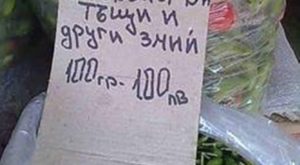 тъщи и
други змии
100гр-100лв